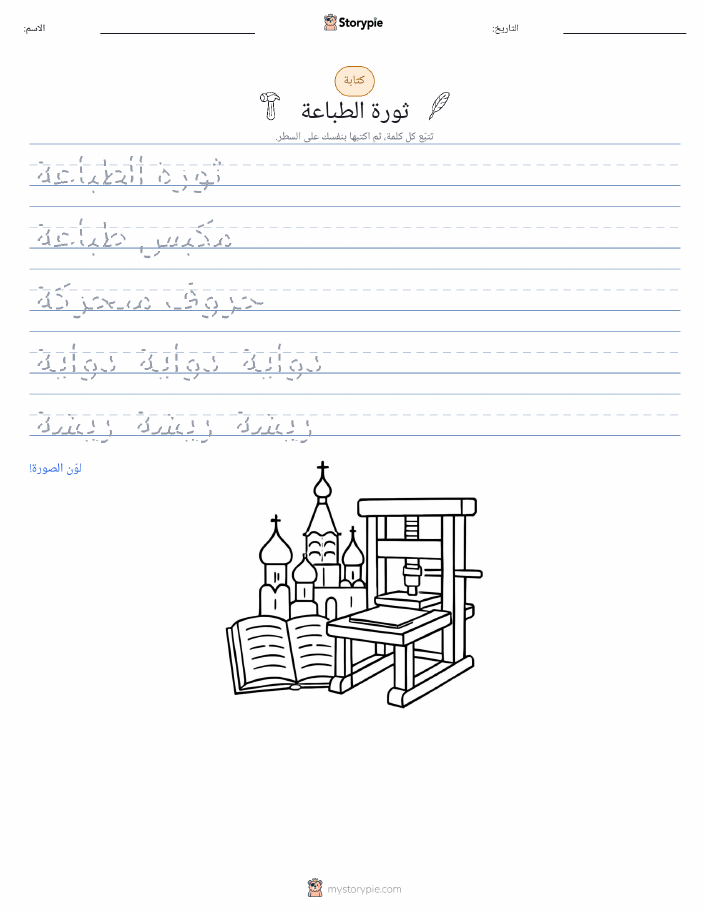 الاسم:
Storypie
التاريخ:
كتابة
ثورة الطباعة
تتبّع كل كلمة، ثم اكتبها بنفسك على السطر.
ثورة الطباعة
مكبس طباعة
حروف متحركة
دواية دواية دواية
ريشة ريشة ريشة
لوّن الصورة!
mystorypie.com